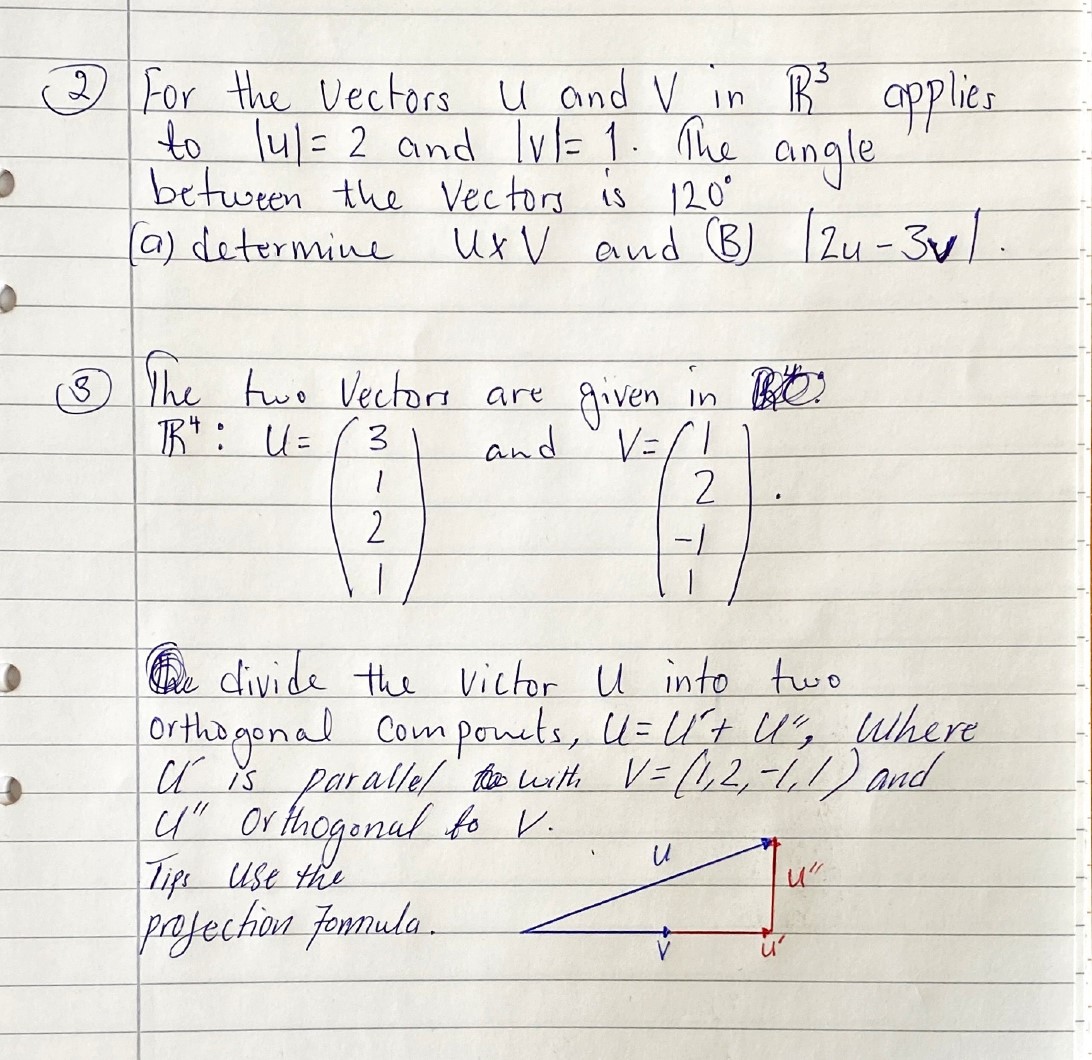 ② For the Vectors u and V in ℝ³ applies
to |u|= 2 and |v|= 1. The angle
between the Vectors is 120°
(a) determine U x V and (B) |2u - 3v|.
③ The two Vectors are given in
ℝ⁴: U = (3 1 2 1) and V = (1 2 -1 1).
divide the victor U into two
orthogonal componets, U = U' + U'', Where
U' is parallel with V = (1,2,-1,1) and
U'' Orthogonal to V.
Tips Use the
projection Formula.
u
u''
v
u'